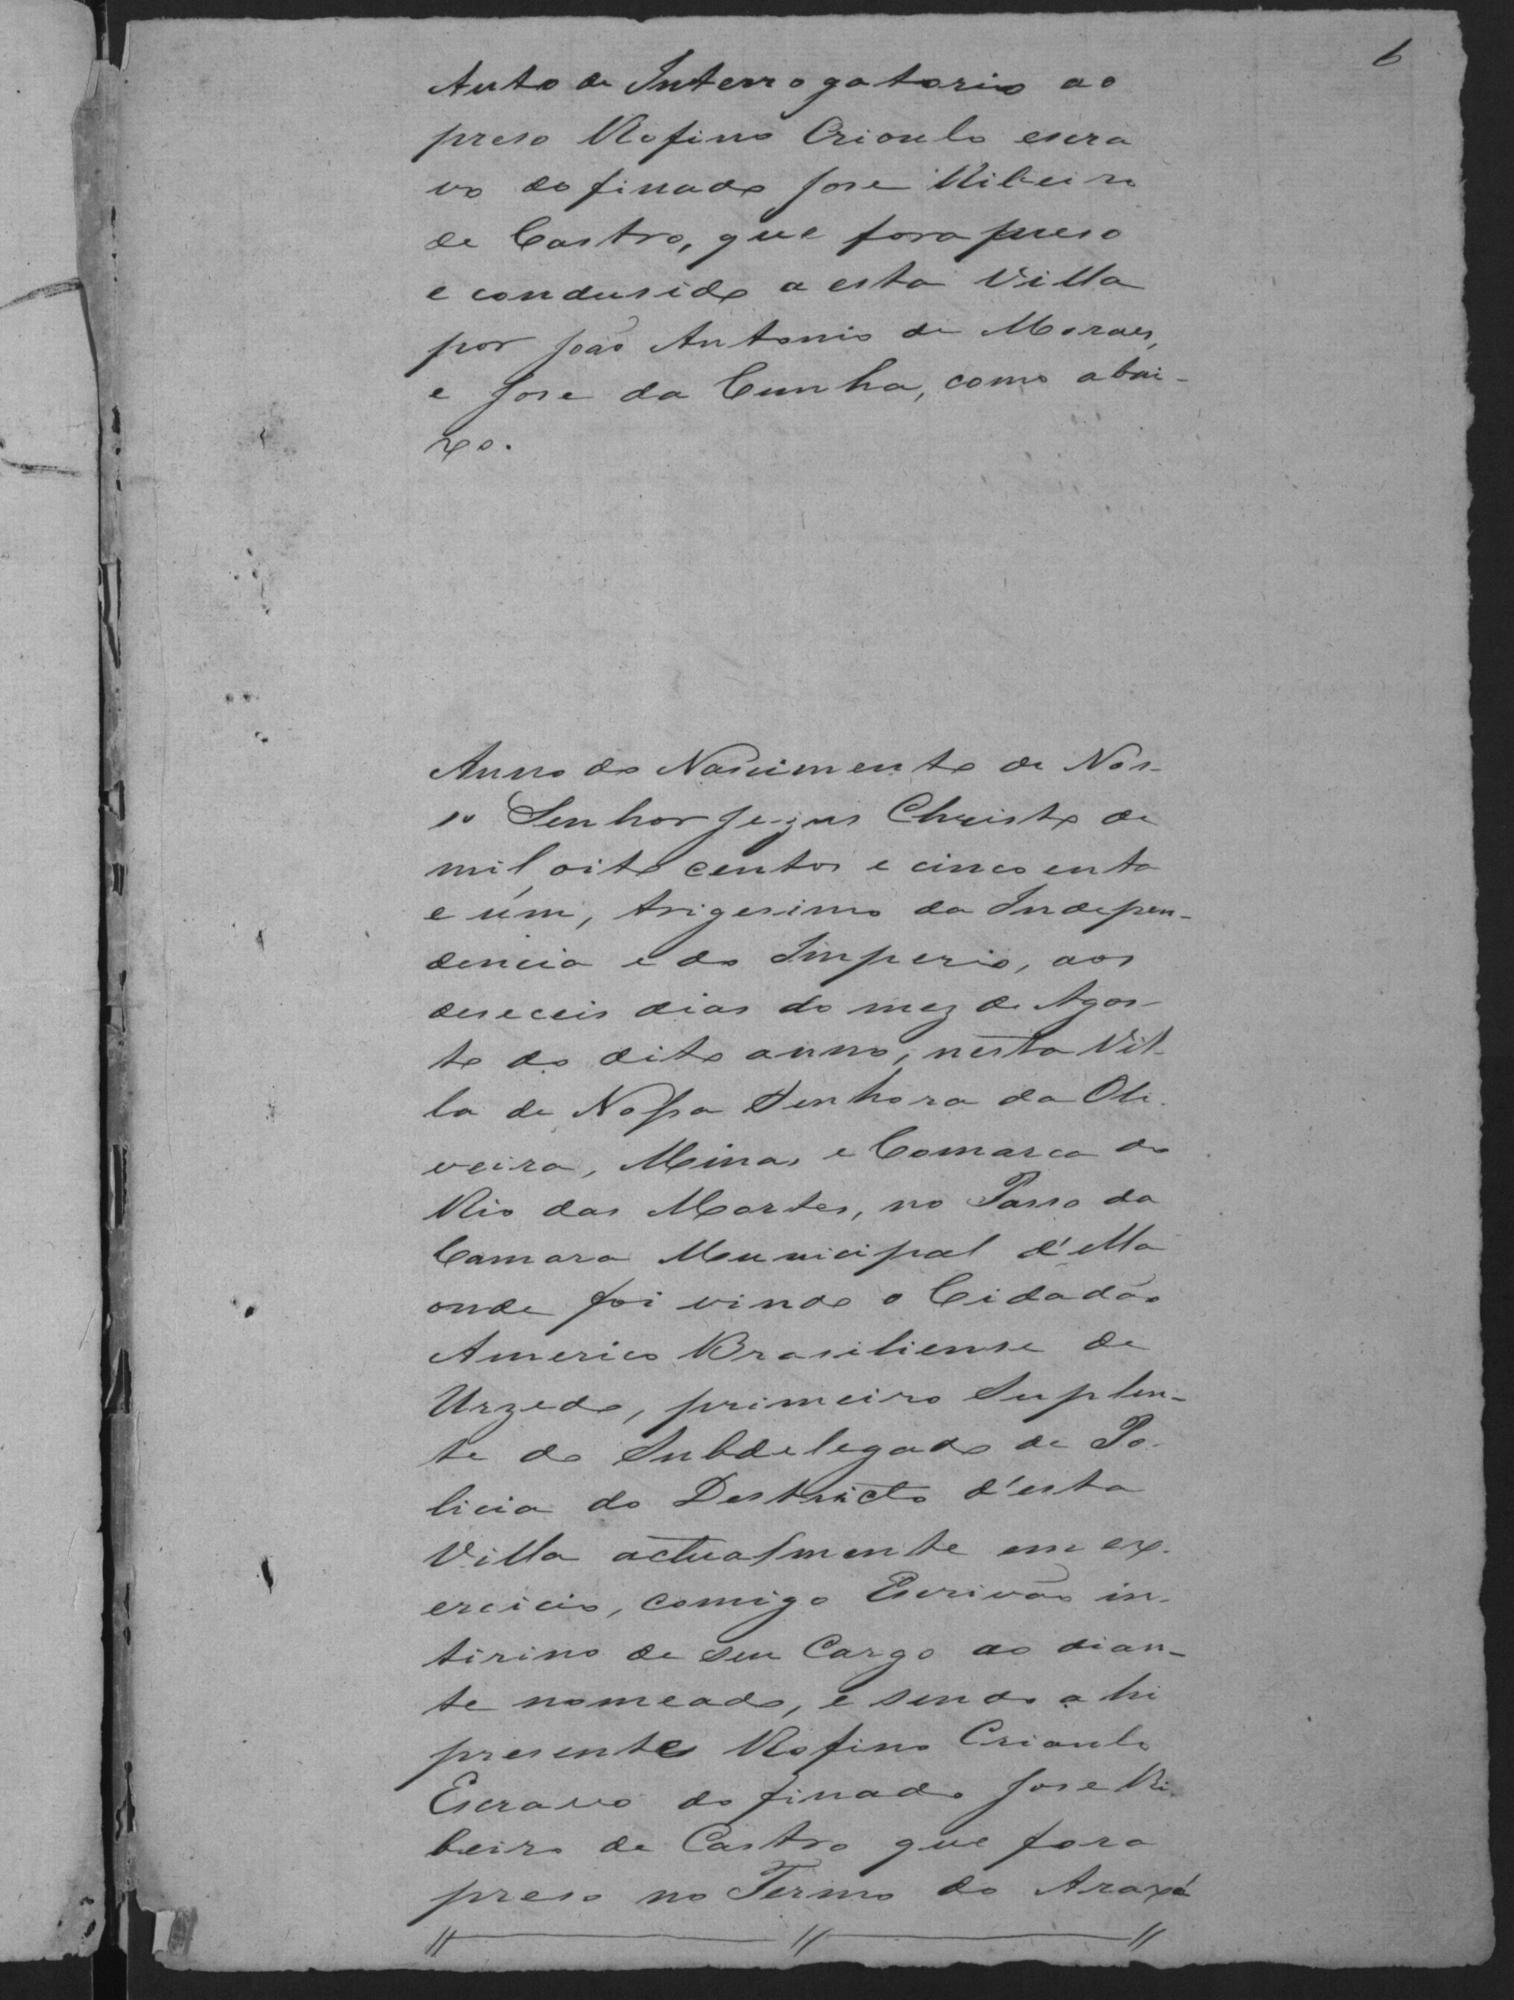 6
Auto de Interrogatorio ao
preso Rofino Crioulo escra
vo do finado Jose Ribeiro
de Castro, que fora preso
e condusido a esta Villa
por João Antonio de Moraes,
e Jose da Cunha, como abai-
xo.
Anno do Nascimento de Nos-
so Senhor Jezus Christo de
mil oito centos e cincoenta
e úm, trigesimo da Indepen-
dencia e do Imperio, aos
deseceis dias do mez de Agos-
to do dito anno, nesta Vil-
la de Nossa Senhora da Oli-
veira, Minas e Comarca do
Rio das Mortes, no Passo da
Camara Municipal d'ella
onde foi vindo o Cidadão
Americo Brasiliense de
Urzedo, primeiro Suplen-
te do Subdelegado de Po-
licia do Destricto d'esta
Villa actualmente em ex-
ercicio, comigo Escrivão in-
tirino de seu Cargo ao dian-
te nomeado, e sendo ahi
presente Rofino Crioulo
Escravo do finado Jose Ri-
beiro de Castro que fora
preso no Termo do Araxá